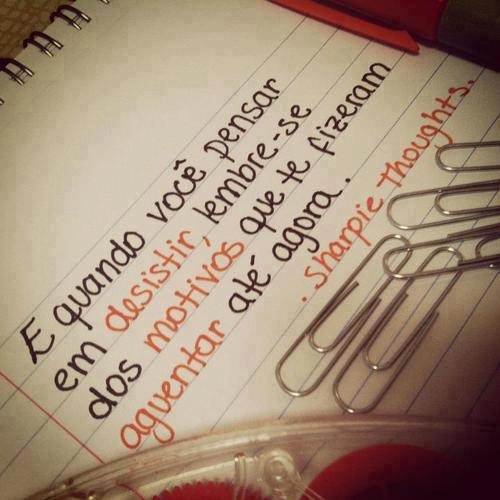 E quando você pensar
em desistir, lembre-se
dos motivos que te fizeram
aguentar até agora.
. sharpie thoughts.